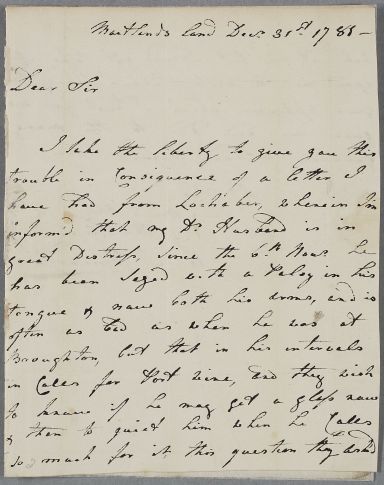 Maitlands Land Decr. 31st. 1785 —
Dear Sir
I take the liberty to give you this
trouble in Consiquence of a letter I
have had from Lochaber, wherein I'm
inform'd that my Dr. Husband is in
great Distress, Since the 6th Novr. he
has been Sezed with a Palcy in his
tongue & nave both his arms, and is
often as bad as when he was at
Broughton, but that in his intervals
in Calls for Port wine, and they wish
to know if he may get a glass now
& then to quiet him when he Calls
so much for it this question they ask'd